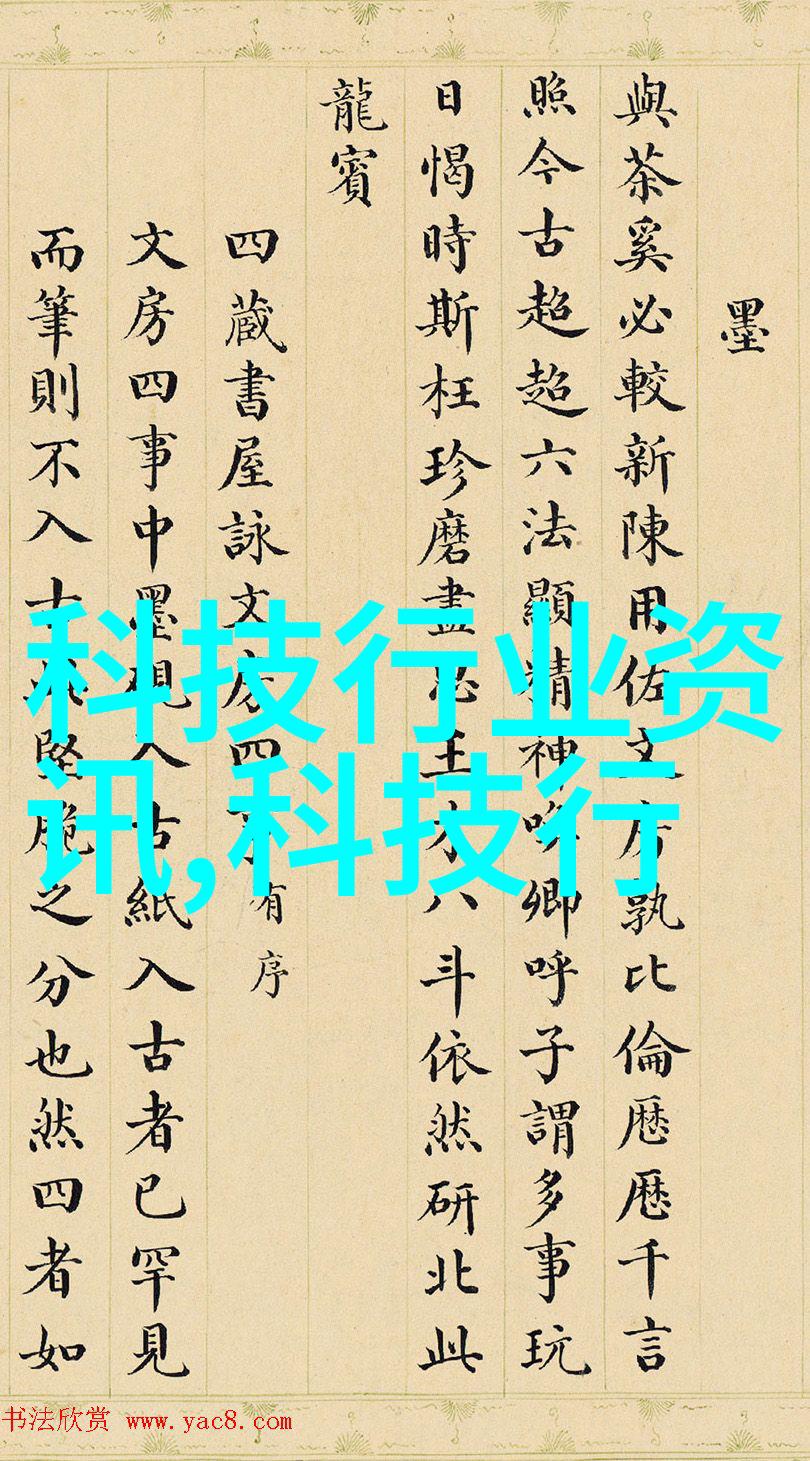 墨
與茶奚必較新陳用佐文房孰比倫厯厯千言
照今古超超六法顯精神喚卿呼子謂多事玩
日愒時斯枉珍磨盡思王才八斗依然研北此
龍賓
四蔵書屋詠文房四有序
文房四事中墨硯入古紙入古者已罕見
而筆則不入堅脆之分也然四者如
科技行业资
讯,科技行
书法欣赏 www.yac8.com